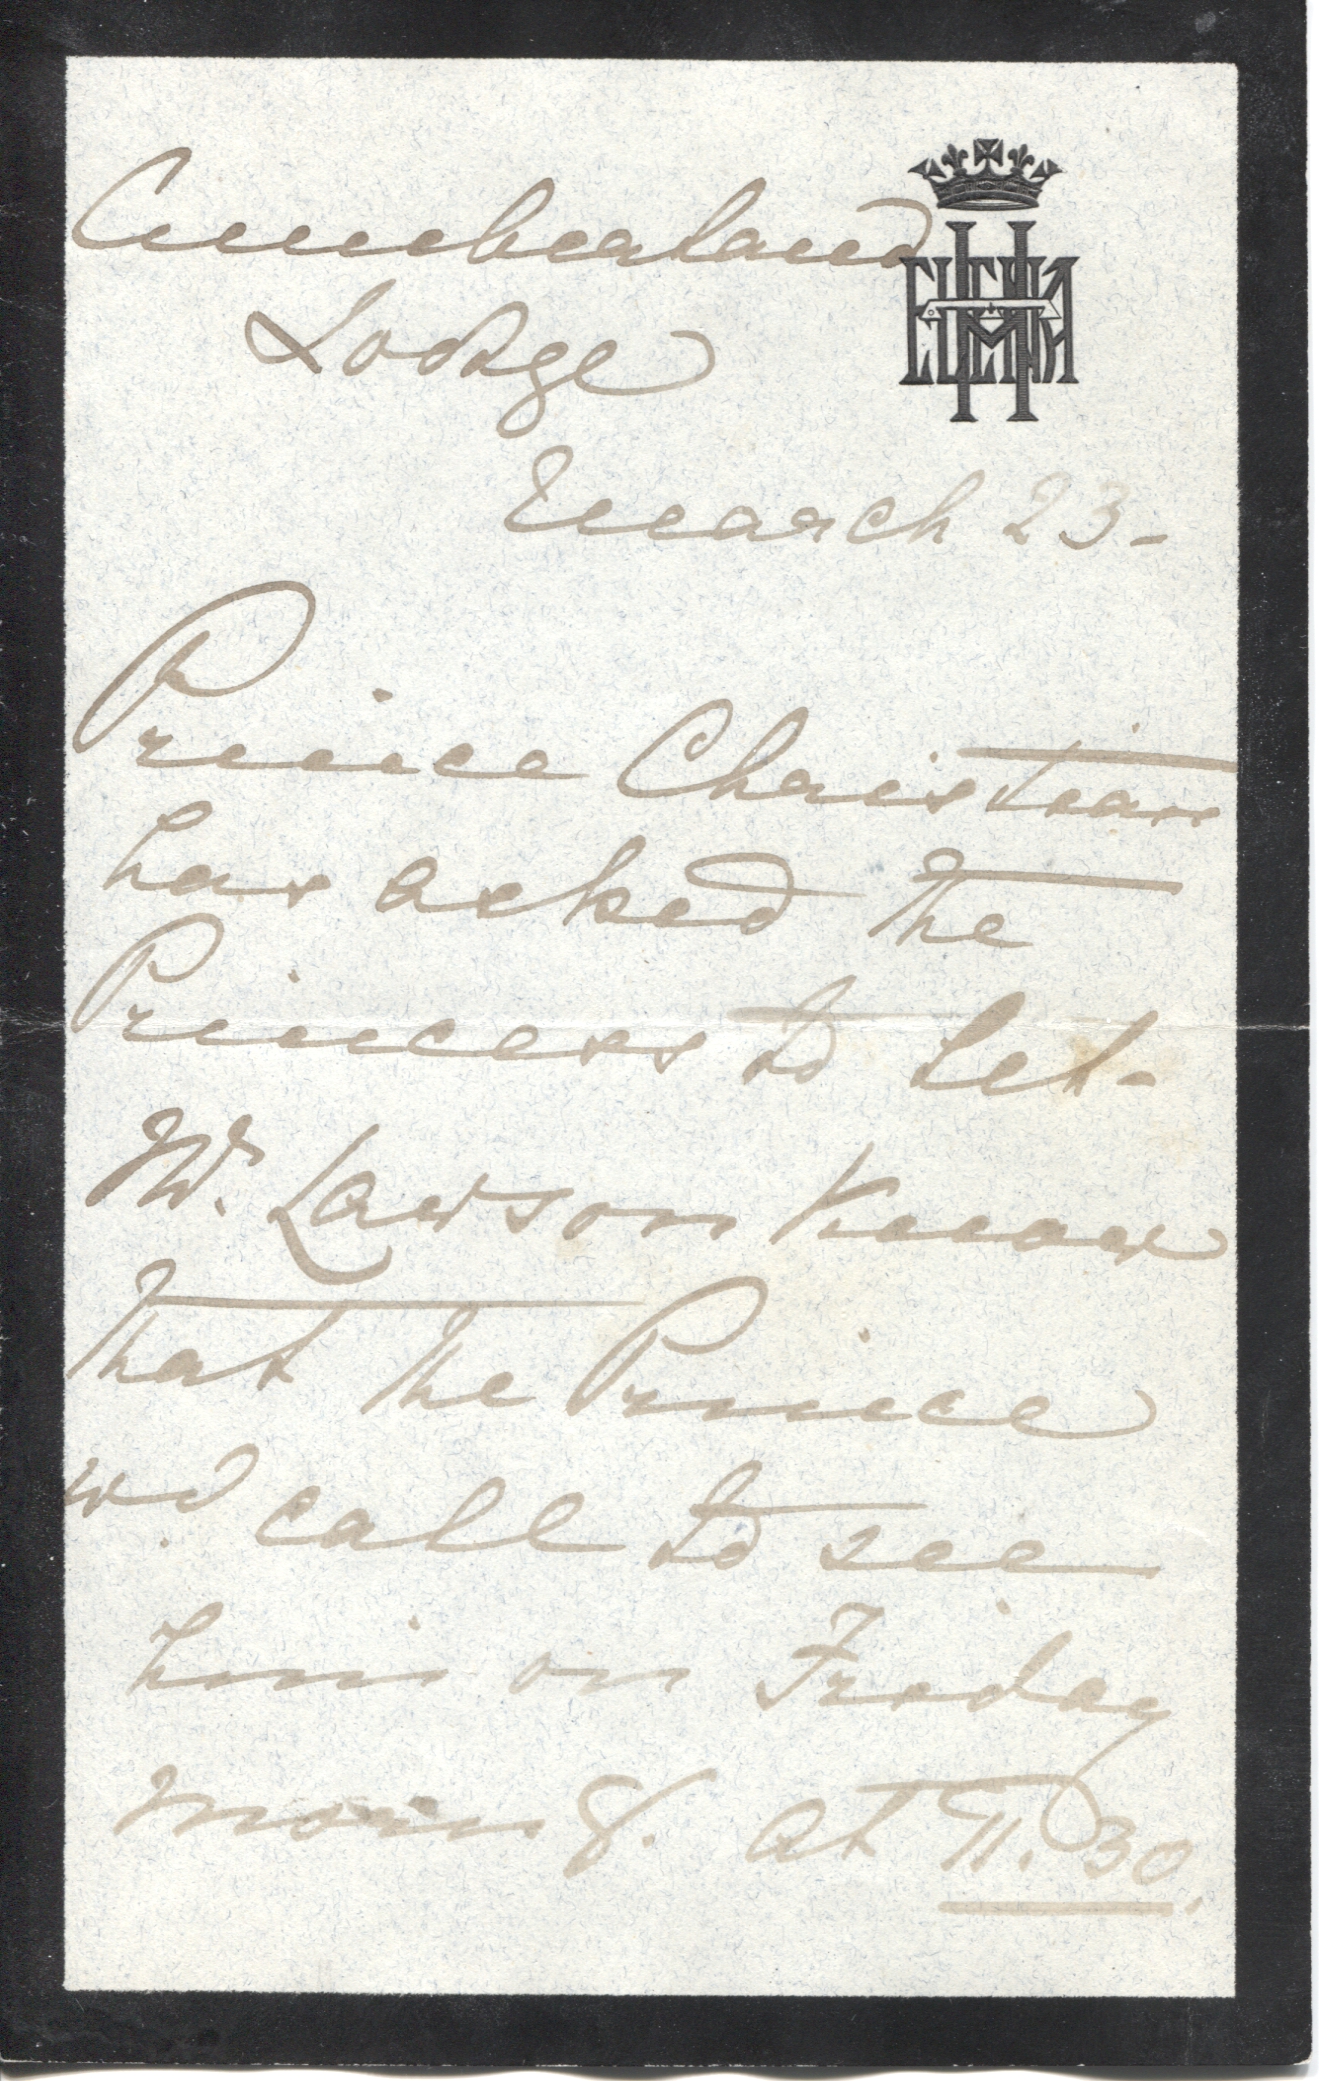 Cumberland
Lodge
HELENA
March 23-
Prince Christian
has asked the
Princess to let-
Mr. Lawson know
that the Prince
wd. call to see
him on Friday
morng. at 11.30.